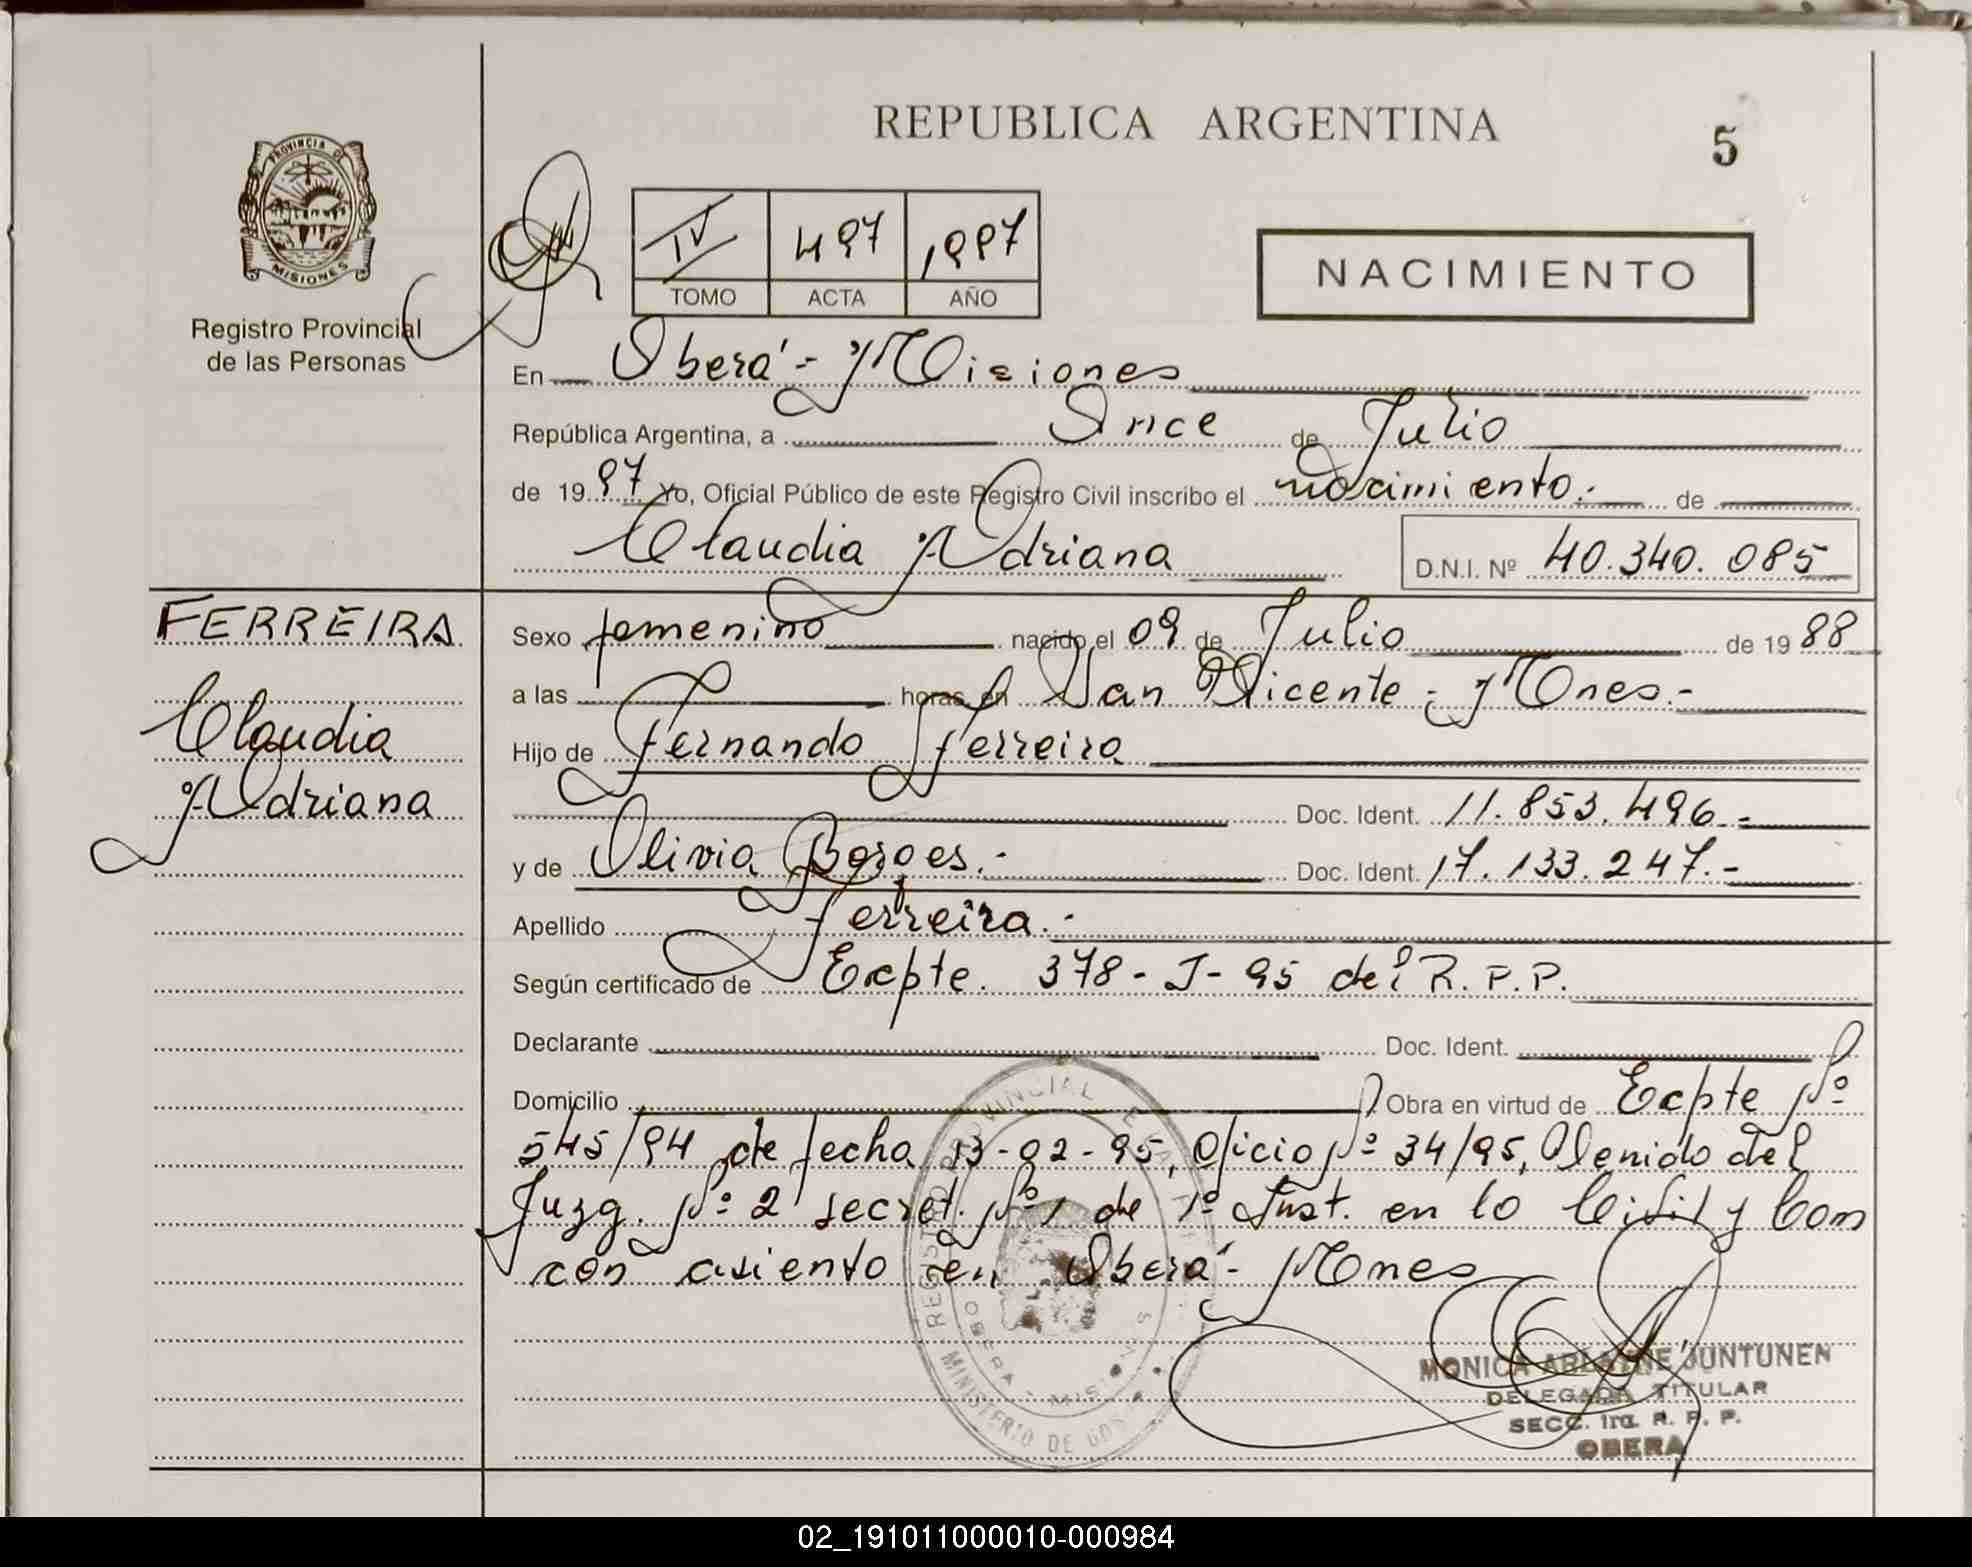 REPUBLICA ARGENTINA
5
PROVINCIA DE
MISIONES
Registro Provincial
de las Personas
IV 497 1997
TOMO ACTA AÑO
NACIMIENTO
En Oberá - Misiones
República Argentina, a Once de Julio
de 1997 Yo, Oficial Público de este Registro Civil inscribo el nacimiento.- de
Claudia Adriana D.N.I. Nº 40.340.085
FERREIRA
Claudia
Adriana
Sexo femenino nacido el 09 de Julio de 1988
a las horas en San Vicente - Mnes.-
Hijo de Fernando Ferreira
Doc. Ident. 11.853.496.-
y de Olivia Borges.- Doc. Ident. 17.133.247.-
Apellido Ferreira.-
Según certificado de Expte. 378-J-95 del R.P.P.
Declarante Doc. Ident.
Domicilio Obra en virtud de Expte Nº
545/94 de fecha 13-02-95, Oficio Nº 34/95, Venido del
Juzg. Nº 2 secret. Nº 1 de 1º Inst. en lo Civil y Com
con asiento en Oberá - Mnes
REGISTRO PROVINCIAL DE LAS
OBERA - MISIONES
MINISTERIO DE GOB
MONICA ARLAYNE JUNTUNEN
DELEGADA TITULAR
SECC. 1ra. R. P. P.
OBERA
02_191011000010-000984